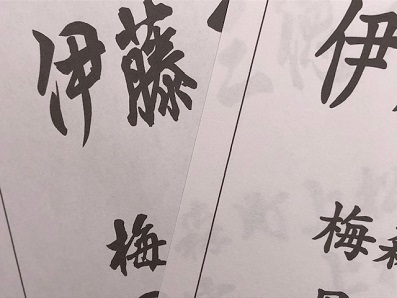 伊藤
梅
伊
梅森